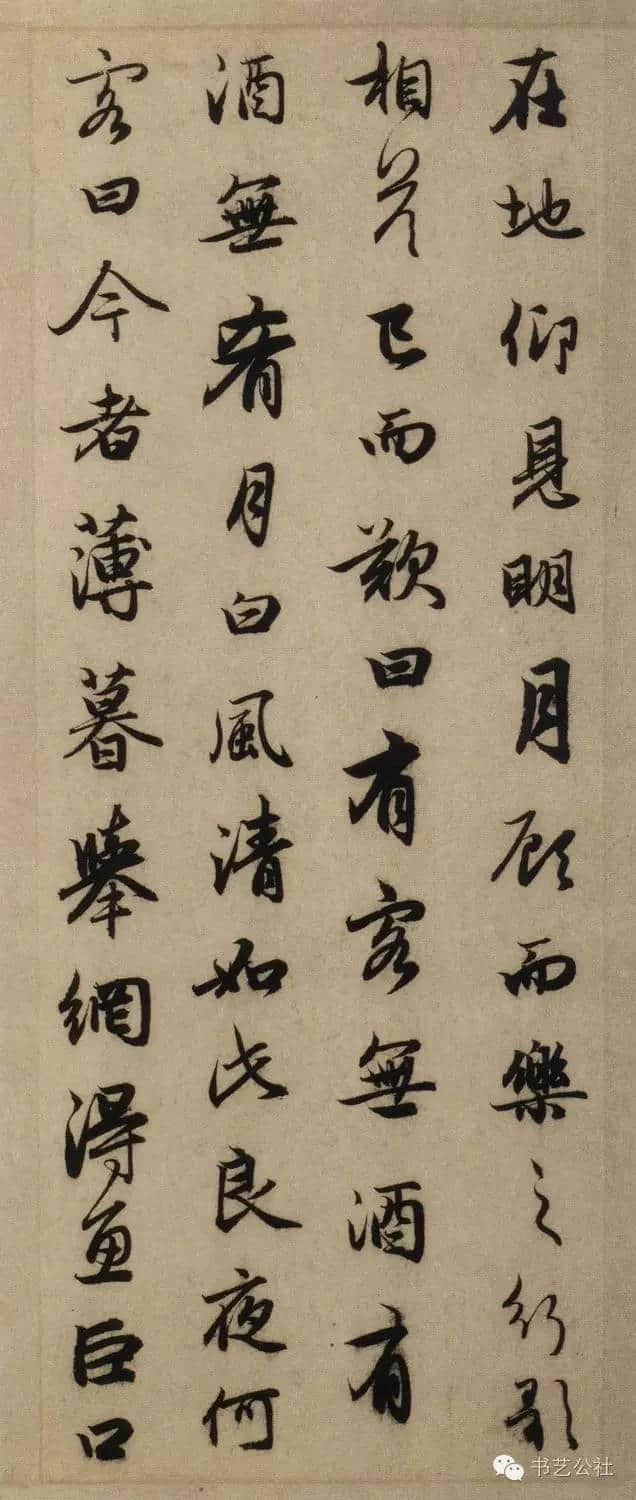 在地仰見明月顧而樂之行歌
相答已而歎曰有客無酒有
酒無肴月白風清如此良夜何
客曰今者薄暮舉網得魚巨口
书艺公社